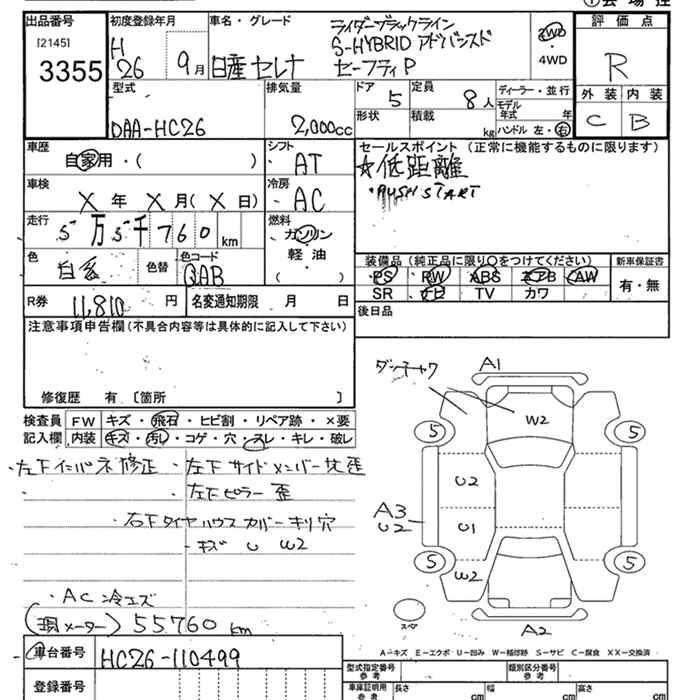 出品番号 [2145] 3355
初度登録年月 H 26 9月
車名・グレード 日産セレナ
ライダーブラックライン
S-HYBRID アドバンスド
セーフティP
2WD・4WD
評価点 R
外装 内装
C B
型式 DAA-HC26
排気量 2,000cc
ドア 5
定員 8人
形状 積載 kg
ディーラー・並行
モデル年式 年
ハンドル 左・右
車歴 自家用・( )
シフト AT
セールスポイント (正常に機能するものに限ります)
☆低距離
・PUSH START
車検 X年 X月(X日)
冷房 AC
走行 5万5千760km
燃料 ガソリン
軽油
( )
色 白系
色替
色コード QAB
装備品 (純正品に限り○をつけてください)
新車保証書
PS RW ABS エアB AW
SR ナビ TV カワ
有・無
R券 11,810円
名変通知期限 月 日
後日品
注意事項申告欄 (不具合内容等は具体的に記入して下さい)
修復歴 有 〔箇所 〕
検査員記入欄
FW キズ・飛石・ヒビ割・リペア跡・×要
内装 キズ・汚れ・コゲ・穴・スレ・キレ・破レ
・左下インパネ修正 ・左下サイドメンバー先歪
・左下ピラー歪
右下タイヤハウスカバーキリ穴
・キズ U W2
・AC冷エズ
(現メーター) 55760km
車台番号 HC26-110499
登録番号
A1
W2
5
5
U2
A3
U2
U1
5
5
W2
スペア
A2
A-キズ E-エクボ U-凹み W-補修跡 S-サビ C-腐食 XX-交換済
型式指定番号 参考
類別区分番号 参考
車庫証明用 参考
長さ cm
幅 cm
高さ cm